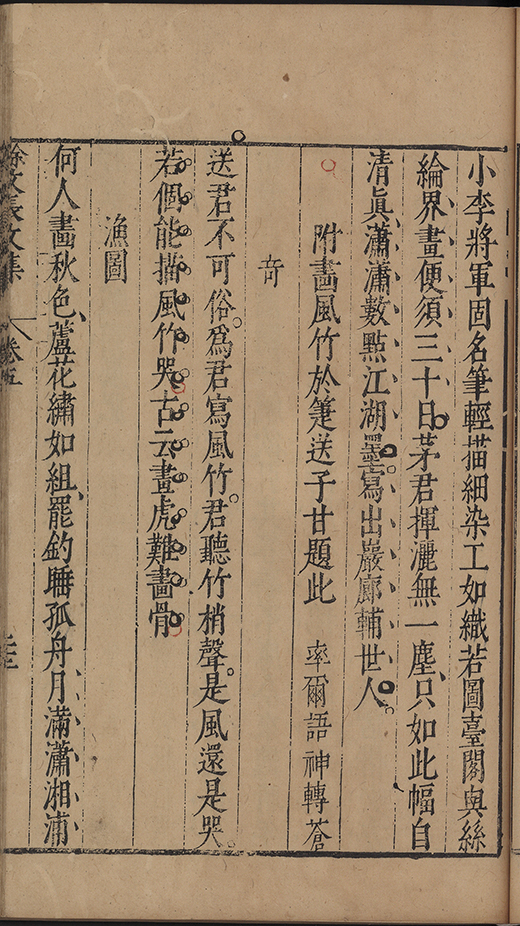 小李將軍固名筆輕描細染工如織若圖臺閣與絲
綸界畫便須三十日茅君揮灑無一塵只如此幅自
清眞瀟瀟數點江湖墨寫出巖廊輔世人
附畫風竹於箑送子甘題此 率爾語神轉蒼
奇
送君不可俗爲君寫風竹君聽竹梢聲是風還是哭
若個能描風竹哭古云畫虎難畫骨
漁圖
何人畵秋色蘆花繡如組罷釣睡孤舟月滿瀟湘浦
徐文長文集 卷五